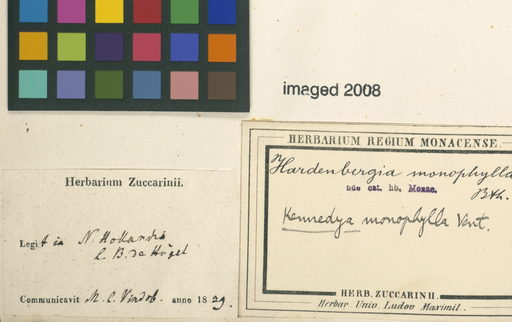 imaged 2008
HERBARIUM REGIUM MONACENSE.
Hardenbergia monophylla
Bth.
Kennedya monophylla Vent.
HERB. ZUCCARINII.
Herbar Univ. Ludov Maximil.
Herbarium Zuccarinii.
Legit in N. Hollandia
L. B. de Hügel
Communicavit M. C. Vindob. anno 1829.